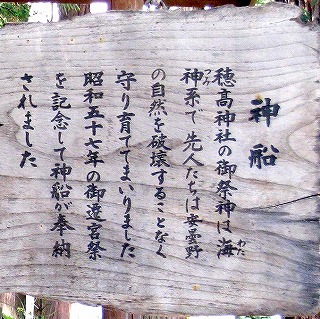 神船
穂高神社の御祭神は海
神系で先人たちは安曇野
の自然を破壊することなく
守り育ててまいりました
昭和五十七年の御遷宮祭
を記念して神船が奉納
されました